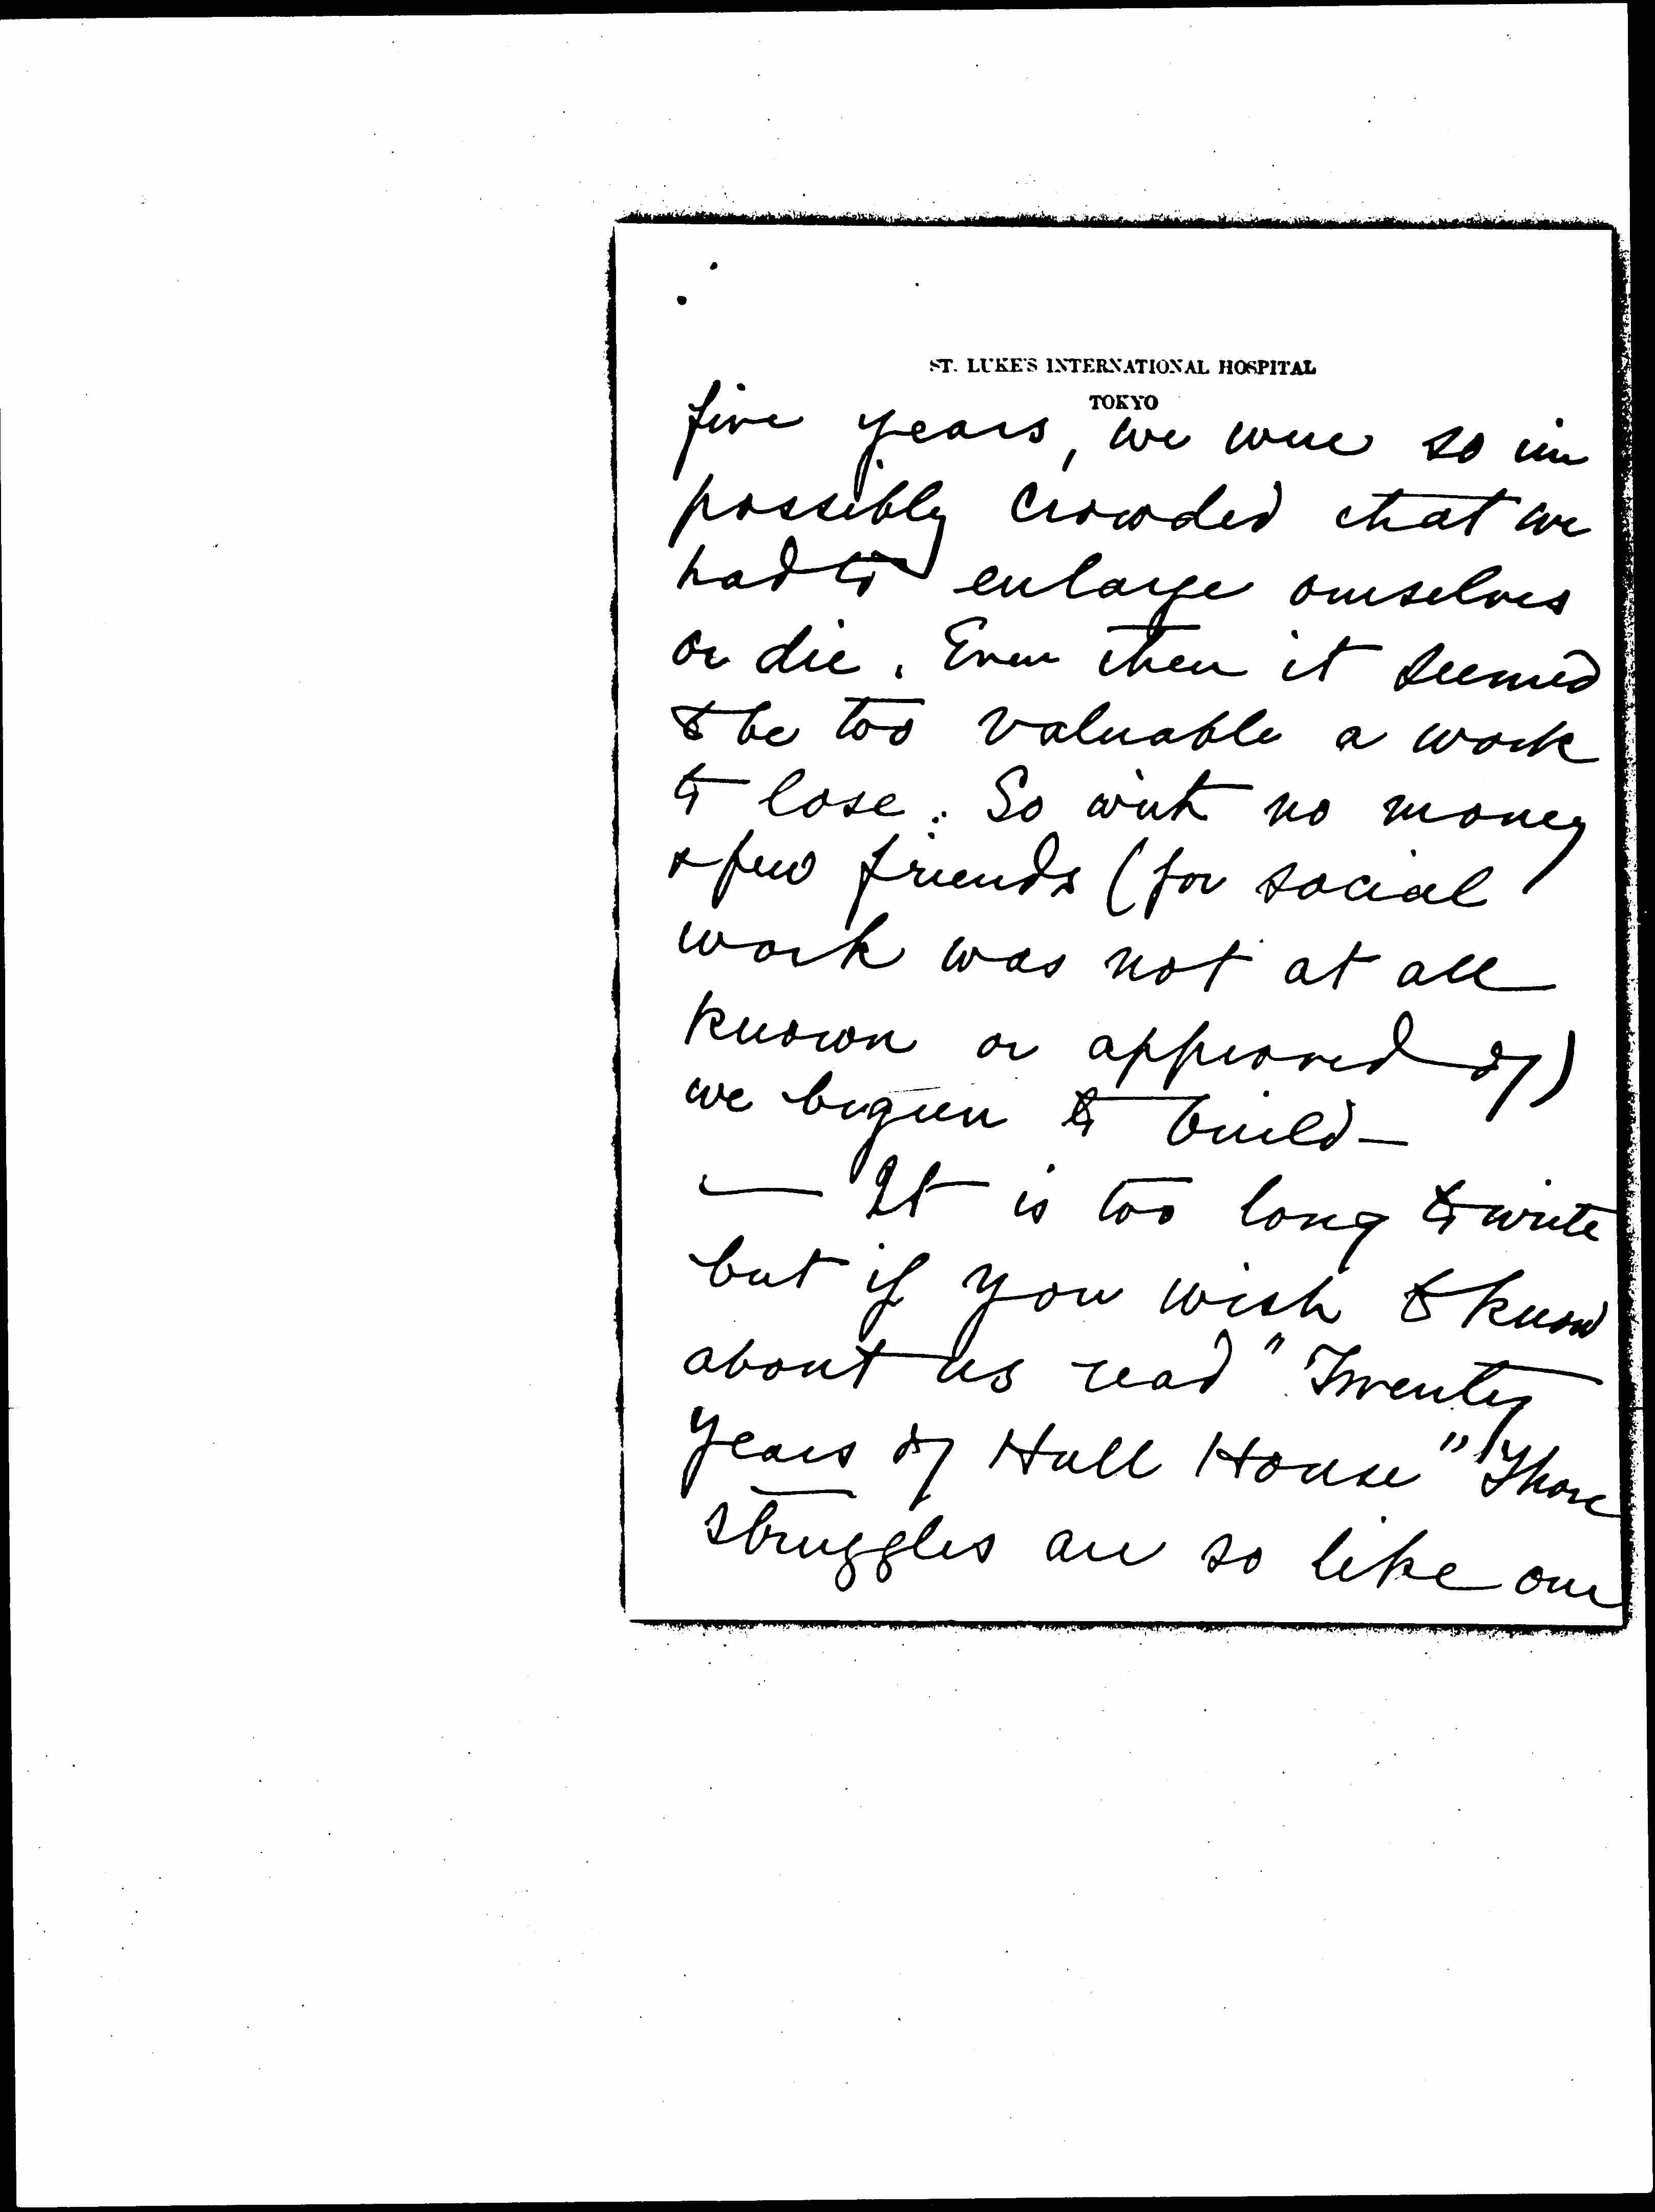 ST. LUKE'S INTERNATIONAL HOSPITAL
TOKYO
five years, we were so im
possibly crowded that we
had to enlarge ourselves
or die. Even then it seemed
to be too valuable a work
to lose. So with no money
& few friends (for social
work was not at all
known or approved of)
we begun to build—
— It is too long to write
but if you wish to know
about us read "Twenty
years of Hull House" Those
struggles are so like our